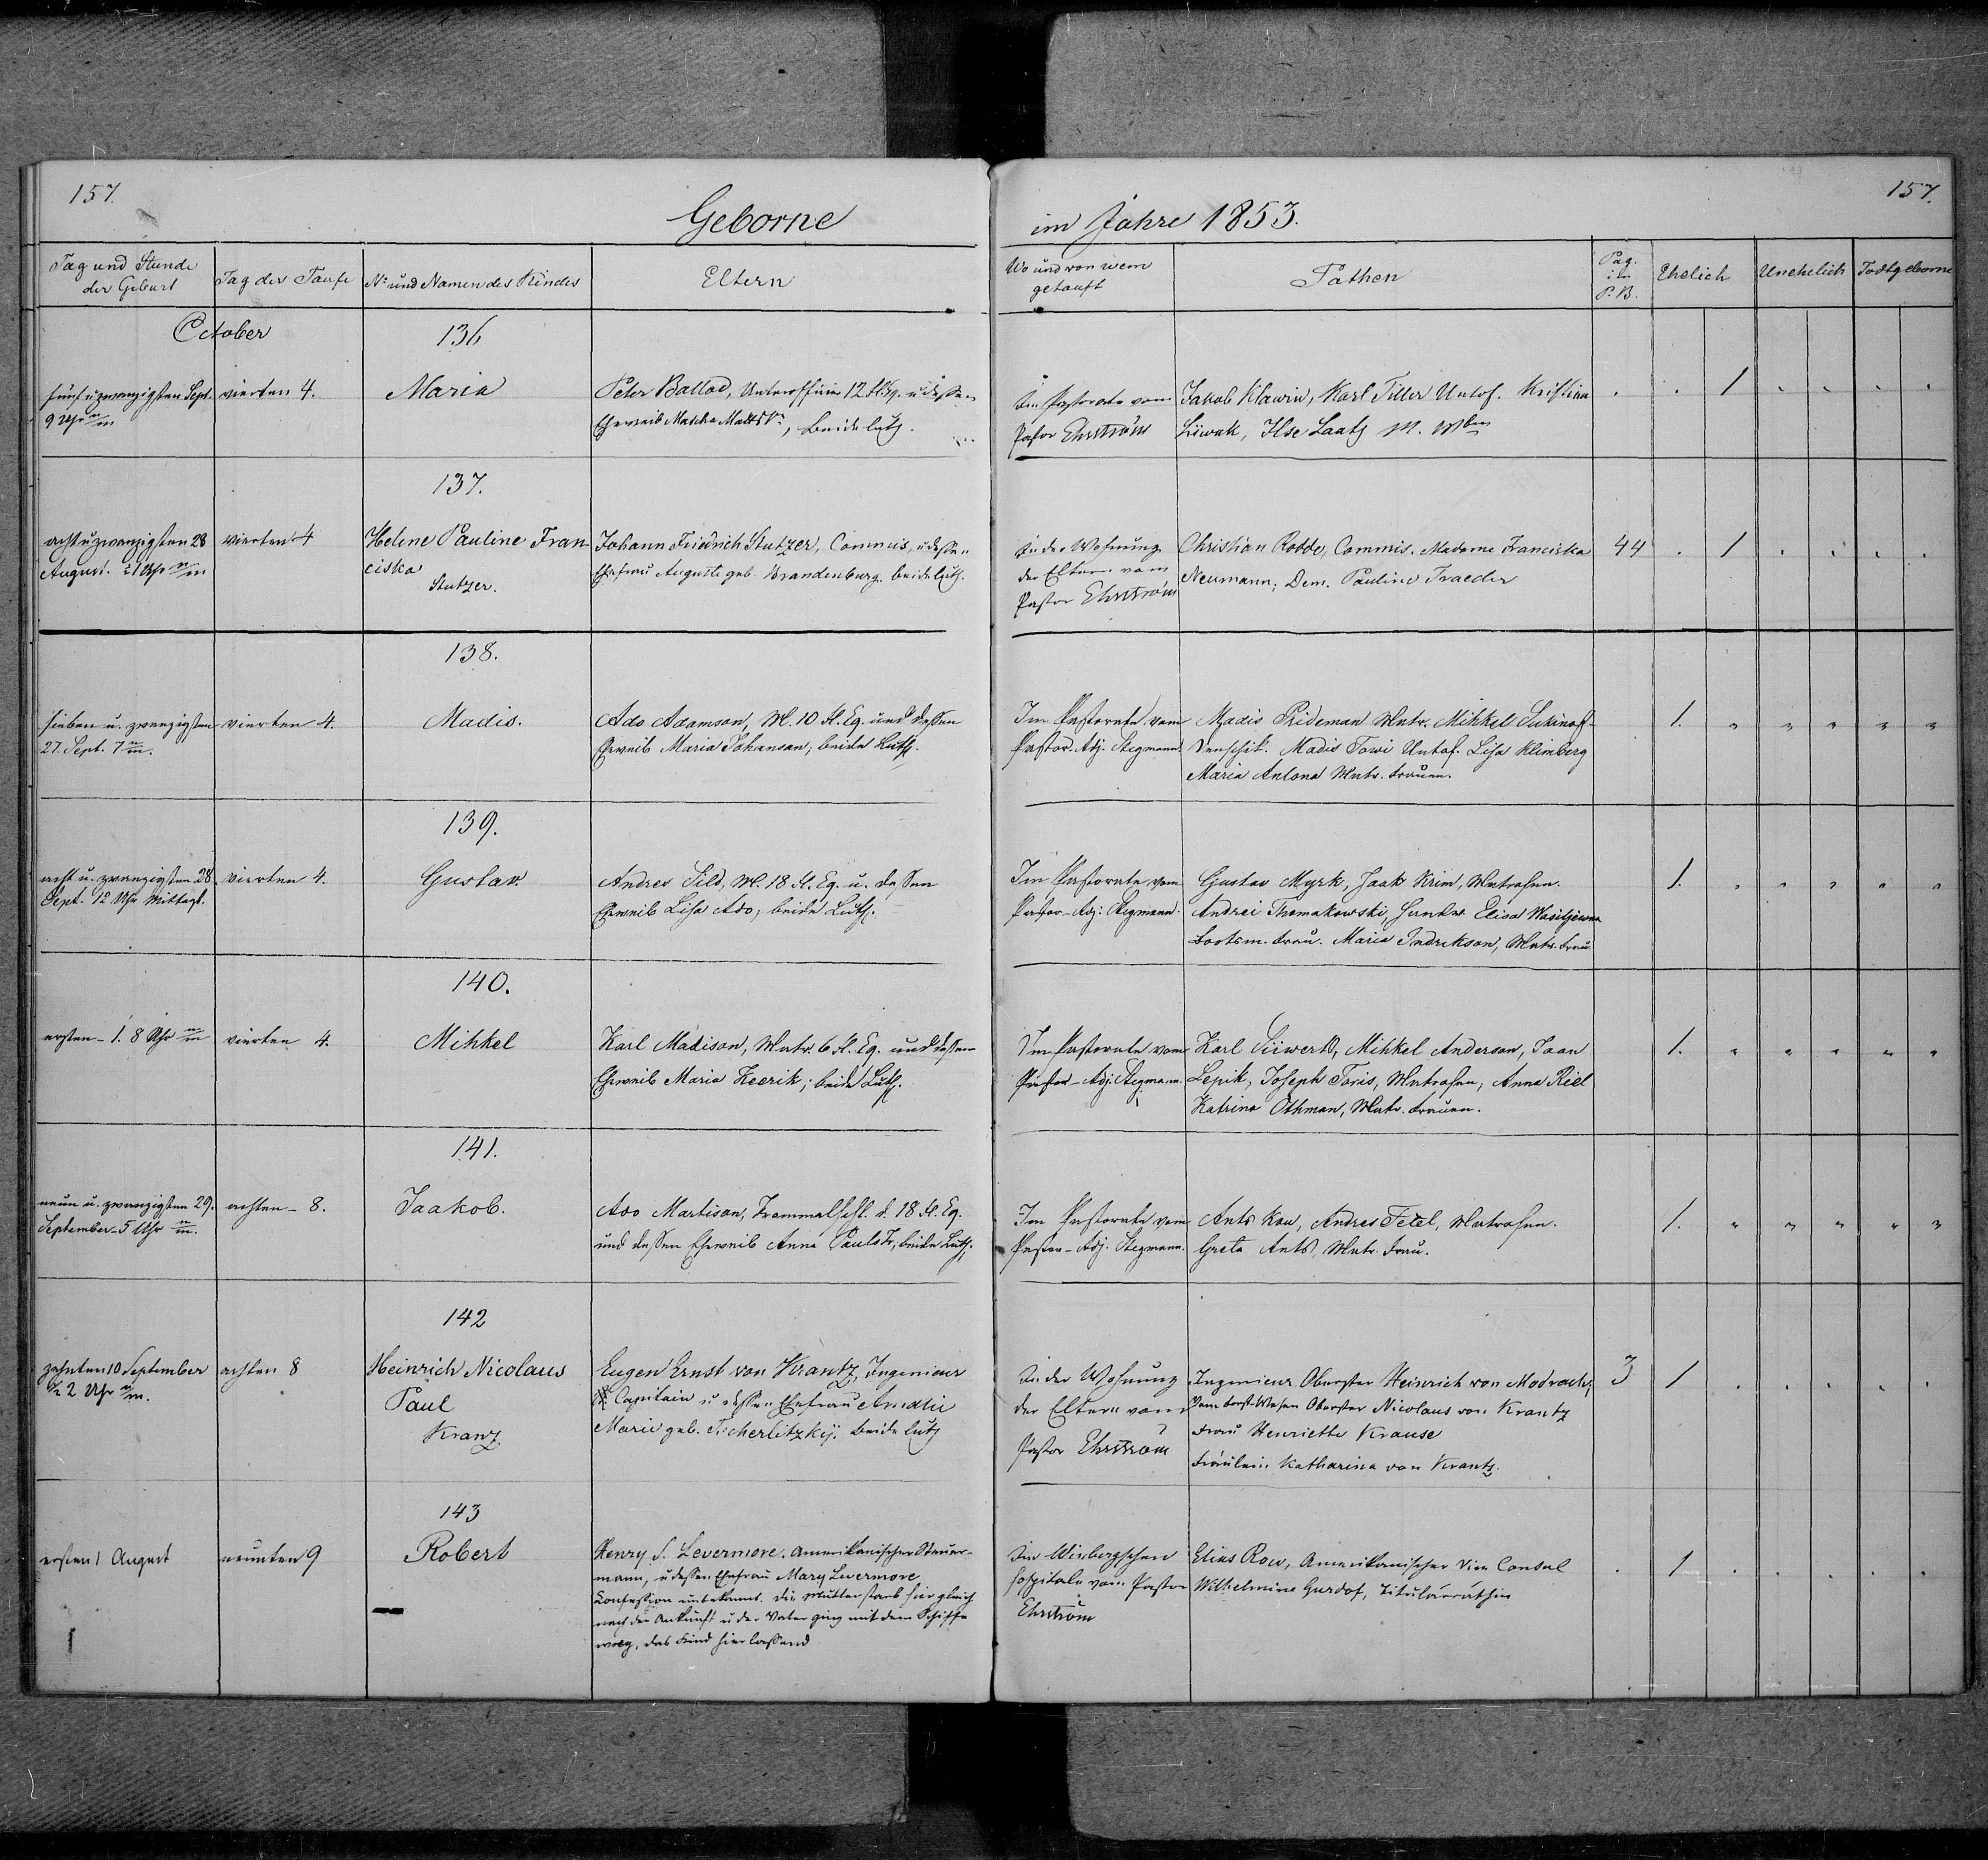 157.
157.
Geborne
im Jahre 1853.
Tag und Stunde der Geburt
Tag der Taufe
No und Namen des Kindes
Eltern
Wo und von wem getauft
Pathen
Pag. im P. B.
Ehelich
Unehelich
Todtgeborne
October
136
fünf u zwanzigsten Sept.
9 Uhr
vierten 4.
Maria
Peter Ballod, Unteroffizier 12 Fl. Eq. u dessen
Eheweib Maicha Matts, beide luth.
Im Pastorate vom
Pastor Ehrström
Jakob Klawin, Karl Tiller Untof. Kristina
Liiwak, Ilse Laatz M. Wben
1
137.
acht u zwanzigsten 28
August. 1 Uhr
vierten 4
Helene Pauline Fran
ciska
Stutzer.
Johann Friedrich Stutzer, Commis, u dessen
Ehefrau Auguste geb. Brandenburg. beide luth.
In der Wohnung
der Eltern vom
Pastor Ehrström
Christian Rodde, Commis. Madame Franciska
Neumann; Dem. Pauline Traeder
44
1
138.
sieben u. zwanzigsten
27. Sept. 7
vierten 4.
Madis.
Ado Adamson, M. 10 Fl. Eq. und dessen
Eheweib Maria Johanson; beide Luth.
Im Pastorate vom
Pastor-Adj. Stegmann.
Madis Rideman Matr. Mihkel Sukinof
Denschik. Madis Towi Untof. Lisa Klimberg
Maria Antona Matr. Frauen.
1.
139.
acht u. zwanzigsten 28
Sept. 12 Uhr Mittags.
vierten 4.
Gustav.
Andres Sild, M. 18 Fl. Eq. u. dessen
Eheweib Lisa Ado; beide Luth.
Im Pastorate vom
Pastor-Adj: Stegmann.
Gustav Myrk, Jaak Krim, Matrosen.
Andrei Thomakowski, Elisa Wasiljewna
Bootsm. Frau. Maria Indrikson, Matr. Frau
1.
140.
ersten - 1. 8 Uhr
vierten 4.
Mihkel
Karl Madison, Matr. 6 Fl. Eq. und dessen
Eheweib Maria Keerik; beide Luth.
Im Pastorate vom
Pastor-Adj. Stegmann.
Karl Siiwerts, Mihkel Anderson, Jaan
Lepik, Joseph Toris, Matrosen, Anna Riel
Katrina Othman, Matr. Frauen.
1.
141.
neun u. zwanzigsten 29.
September - 5 Uhr
achten - 8.
Jaakob.
Ado Martison, Trommelschl. d. 18 Fl. Eq.
und dessen Eheweib Anna Pauls Tr; beide Luth.
Im Pastorate vom
Pastor-Adj. Stegmann.
Ants Kau, Andres Tetel, Matrosen.
Greta Ants, Matr. Frau.
1.
142
zehnten 10 September
2 Uhr
achten 8
Heinrich Nicolaus
Paul
Kranz.
Eugen Ernst von Krantz, Ingenieur
Capitain u dessen Ehefrau Amalie
Marie geb. Tscherlitzkij. beide luth
In der Wohnung
der Eltern vom
Pastor Ehrström
Ingenieur Oberster Heinrich von Modrach,
vom Forst-Wesen Oberster Nicolaus von Krantz
Frau Henriette Krause
Fräulein Katharina von Krantz.
3
1
143
ersten 1 August
neunten 9
Robert
Henry S. Levermore. Amerikanischer Steuer-
mann, u dessen Ehefrau Mary Levermore
Konfession unbekannt. Die Mutter starb hier gleich
nach der Ankunft u der Vater ging mit dem Schiffe
weg, das Kind hier lassend
Im Wiebergschen
Hospitale vom Pastor
Ehrström
Elias Row, Amerikanischer Vice Consul
Wilhelmine Gurdof, Titulärräthin
1